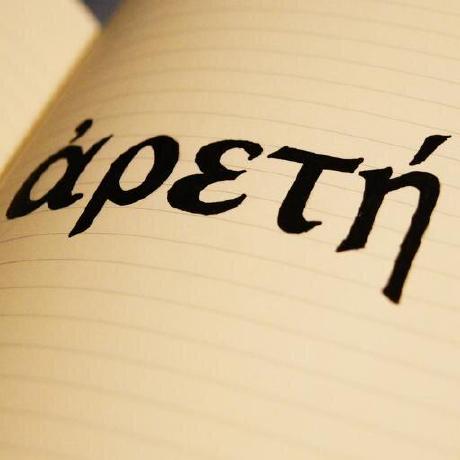 ἀρετή